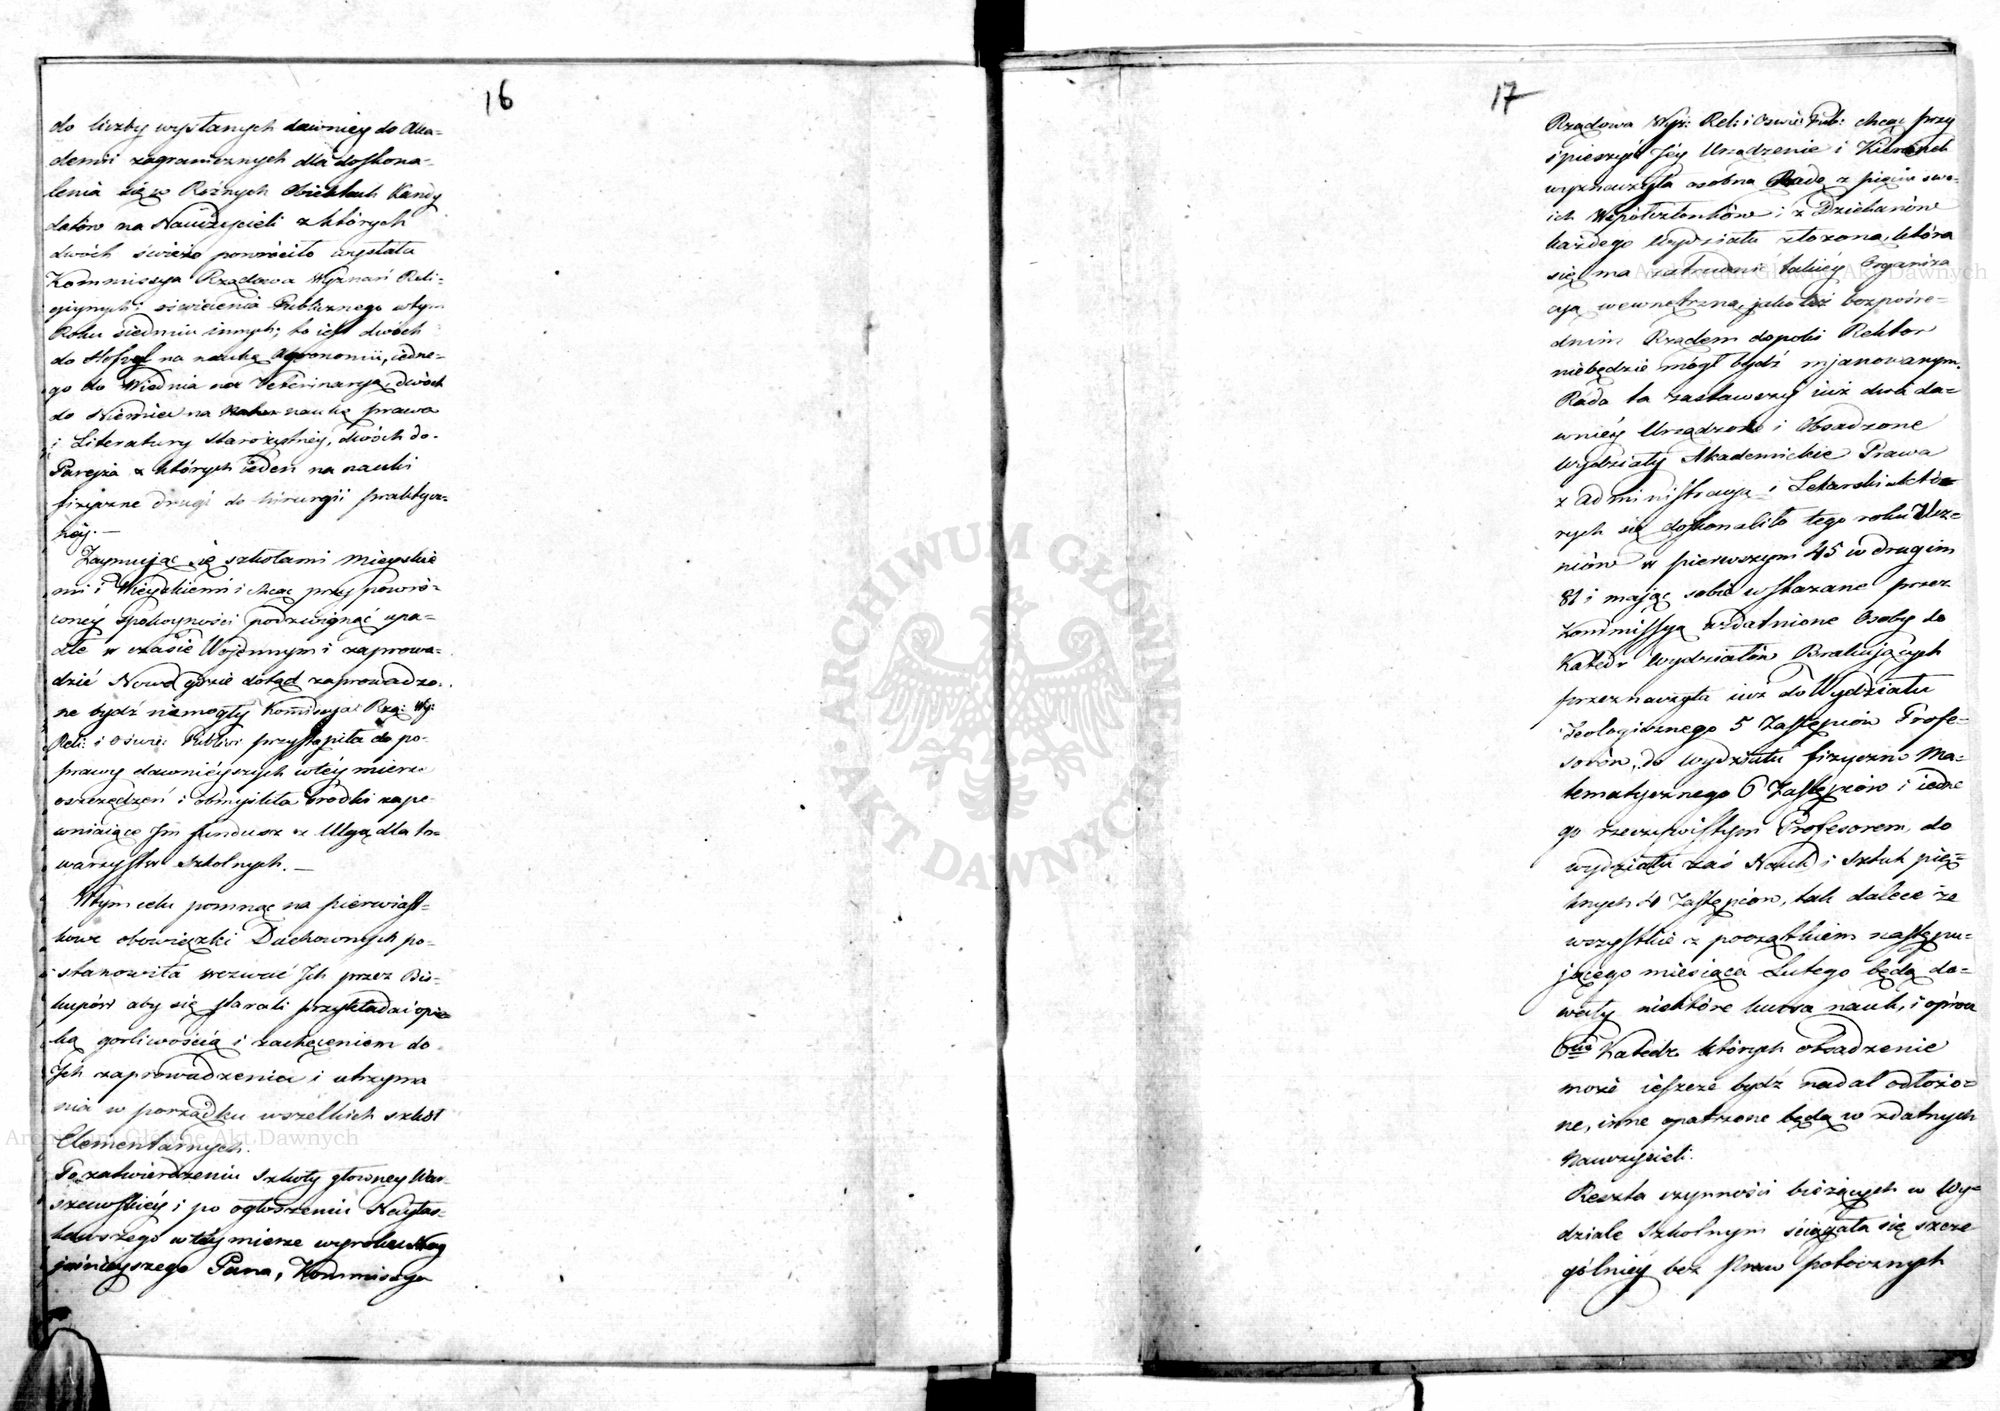 16
do liczby wysłanych dawniey do Aka-
demii zagranicznych dla doskona-
lenia się w Rożnych Obiektach Kandy
datów na Nauczycieli z których
dwóch świeżo powróciło wysłała
Kommissya Rządowa Wyznań Reli-
giynych i oświecenia Publicznego wtym
Roku siedmiu innych; to iest dwóch
do Hofwyl na naukę Agronomii, iedne-
go do Wiednia na Veterinaryą, dwóch
do Niemiec na naukę prawa
i Literatury Starożytney, dwóch do
Paryża z których ieden na nauki
fizyczne drugi do hirurgii praktycz-
néy. —
Zaymuiąc się szkołami Mieyskie
mi i Wieyskiemi i chcąc przy powró-
coney Spokoyności podzwignąć upa-
dłe w czasie Woiennym i zaprowa-
dzić Nowe gdzie dotąd zaprowadzo-
ne bydź niemogły Kommissya Rzą: Wy:
Reli: i Oświe: Publicz: przystąpiła do po-
prawy dawniéyszych wtéy mierze
oszczędzeń i obmyśliła środki zape-
wniaiące Im fundusz z Ulgą dla to-
warzystw Szkolnych. —
Wtym celu pomnąc na pierwiast-
kowe obowiązki Duchownych po-
stanowiła wezwać Ich przez Bis-
kupów aby się starali przykładać opie-
ką gorliwością i zachęceniem do
Ich zaprowadzenia i utrzyma
nia w porządku wszelkich szkół
Elementarnych.
Po zatwierdzeniu Szkoły głowney War-
szawskiéy i po ogłoszeniu Nayłas-
kawszego wtéy mierze wyroku Nay
jaśnieyszego Pana, Kommissya
17
Rządowa Wyz: Rel: i Oświe: Pub: chcąc przy
śpieszyć Jéy Urządzenie i Kierunek
wyznaczyła osobna Radę z pięciu swo-
ich Wspołczłonków i z Dziekanów
każdego Wydziału złożoną, która
się ma zatrudnić takiéy Organiza
cyą wewnętrzną, jako też bezpośre-
dnim Rządem dopoki Rektor
niebędzie mógł bydź mianowanym.
Rada ta zastawszy iuż dwa da-
wniéy Urządzone i Obsadzone
Wydziały Akademickie Prawa
z Administracyą i Lekarski w któ-
rych się doskonaliło tego roku Ucz-
niów w pierwszym 45 w drugim
81 i mając sobie wskazane przez
Kommissyą uzdatnione Osoby do
Katedr Wydziałów Brakujących
przeznaczyła iuż do Wydziału
Teologicznego 5 Zastępców Profe-
sorów, do wydziału fizyczno Ma-
tematycznego 6 Zastępców i iedne
go rzeczywistym Profesorem, do
wydziału zaś Nauk i Sztuk pię-
knych 4 Zastępców, tak dalece że
wszystkie z początkiem nastepu-
jącego miesiąca Lutego będą da-
wały niektóre kursa nauk, i oprócz
6ciu Katedr których obsadzenie
może ieszcze bydź nadal odłożo-
ne, inne opatrzone będą w zdatnych
Nauczycieli.
Reszta czynności bieżących w Wy-
dziale Szkolnym ściągała się szcze
gólniéy bez Spraw potocznych
Archiwum Główne Akt Dawnych
Archiwum Główne Akt Dawnych
ARCHIWUM GŁÓWNE AKT DAWNYCH